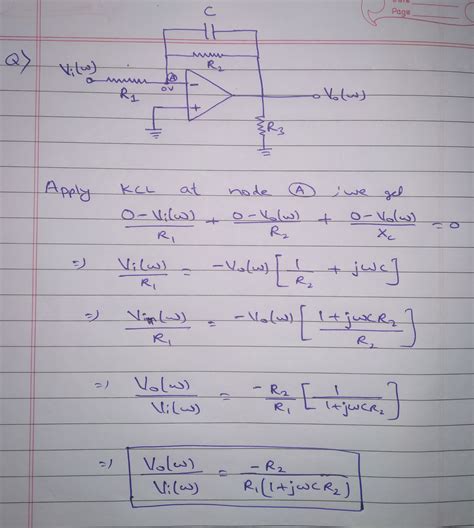 Date
Page
C
Q)
Vi(ω)
R2
A
0V
R1
-
+
Vo(ω)
R3
Apply KCL at node A ; we get
(0-Vi(ω))/R1 + (0-Vo(ω))/R2 + (0-Vo(ω))/Xc = 0
=) Vi(ω)/R1 = -Vo(ω) [1/R2 + jωc]
=) Vin(ω)/R1 = -Vo(ω) [(1+jωCR2)/R2]
=) Vo(ω)/Vi(ω) = -R2/R1 [1/(1+jωCR2)]
=) Vo(ω)/Vi(ω) = -R2/(R1(1+jωCR2))